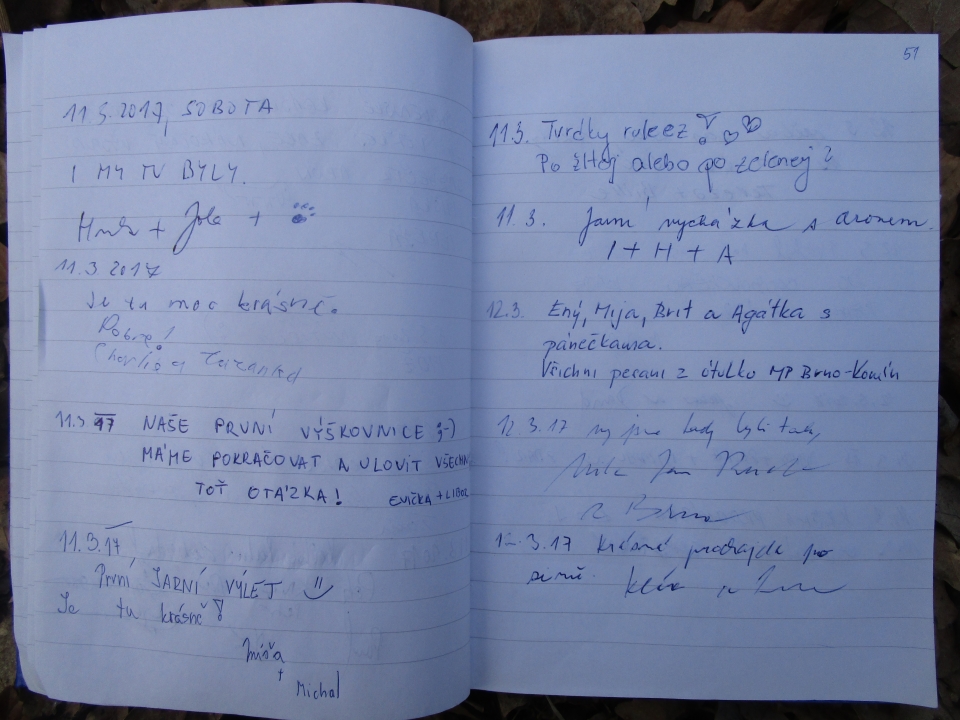 11.3.2017, SOBOTA
I MY TU BYLY.
+ Jola +
11.3 2017
Je tu moc krásně.
Dobrej!
Charlie a
11.3 17 NAŠE PRVNÍ VÝŠKOVNICE ;-)
MÁME POKRAČOVAT A ULOVIT VŠECHN
TOŤ OTÁZKA! EVIČKA + LIBOR
11.3.17
První JARNÍ VÝLET
Je tu krásně!
Míša
+
Michal
51
11.3. Tvrďky ruleez!
Po žltej alebo po zelenej?
11.3. Jarní vycházka s Aronem.
I + H + A
12.3. Eny, Mija, Brit a Agátka s
páníčkama.
Všichni pesani z útulku MP Brno-Komín
12.3.17 my jsme tady byli taky
Jan
z Brna
12.3.17 Krásná procházka po
zimě.